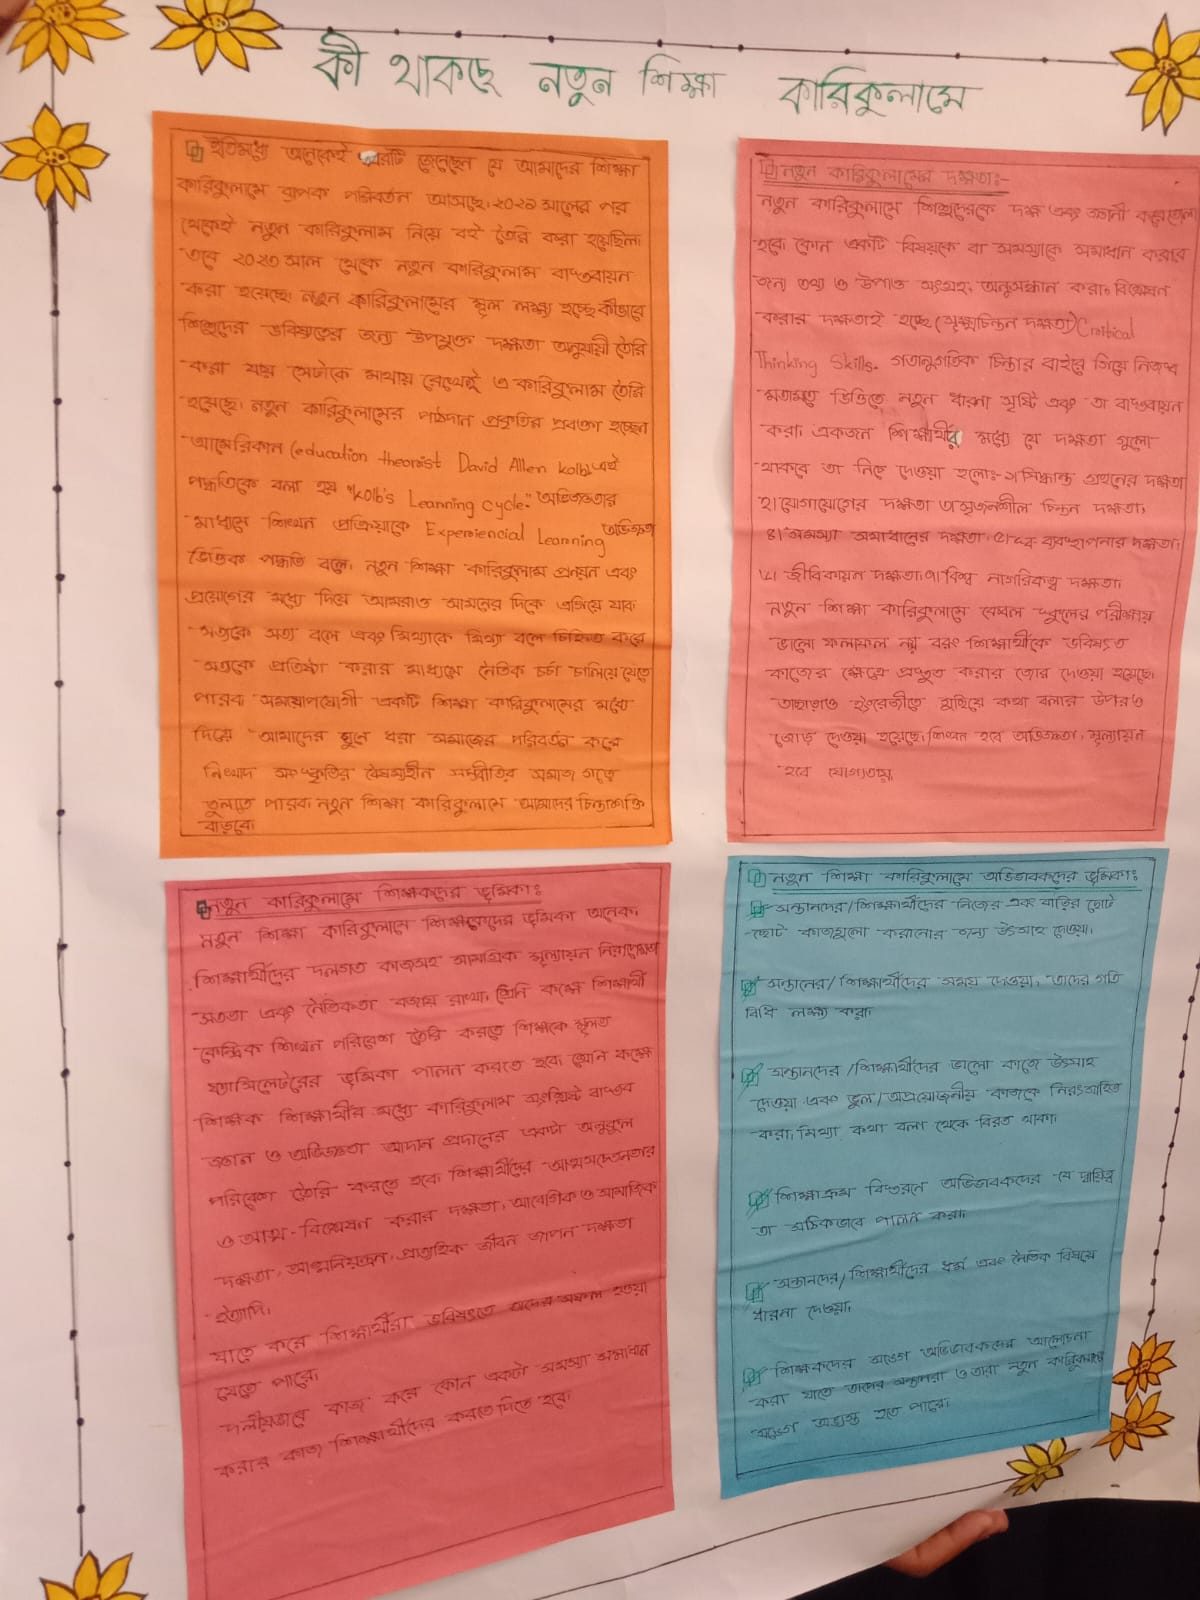 কী থাকছে নতুন শিক্ষা কারিকুলামে
ইতিমধ্যে অনেকেই খবরটি জেনেছেন যে আমাদের শিক্ষা
কারিকুলামে ব্যাপক পরিবর্তন আসছে। ২০২১ সালের পর
থেকেই নতুন কারিকুলাম নিয়ে বই তৈরি করা হয়েছিল।
তবে ২০২৩ সাল থেকে নতুন কারিকুলাম বাস্তবায়ন
করা হয়েছে। নতুন কারিকুলামের মূল লক্ষ্য হচ্ছে কীভাবে
শিশুদের ভবিষ্যতের জন্য উপযুক্ত দক্ষতা অনুযায়ী তৈরি
করা যায় সেটাকে মাথায় রেখেই এ কারিকুলাম তৈরি
হয়েছে। নতুন কারিকুলামের পাঠদান প্রকৃতির প্রবক্তা হচ্ছেন
আমেরিকান (education theorist David Allen kolb) এই
পদ্ধতিকে বলা হয় "Kolb's Learning cycle." অভিজ্ঞতার
মাধ্যমে শিখন প্রক্রিয়াকে Experiencial Learning অভিজ্ঞতা
ভিত্তিক পদ্ধতি বলে। নতুন শিক্ষা কারিকুলাম প্রনয়ন এবং
প্রয়োগের মধ্যে দিয়ে আমরাও সামনের দিকে এগিয়ে যাব।
সত্যকে সত্য বলে এবং মিথ্যাকে মিথ্যা বলে চিহ্নিত করে
সত্যকে প্রতিষ্ঠা করার মাধ্যমে নৈতিক চর্চা চালিয়ে যেতে
পারব। সময়োপযোগী একটি শিক্ষা কারিকুলামের মধ্যে
দিয়ে আমাদের ঘুনে ধরা সমাজের পরিবর্তন করে
নিখাদ সংস্কৃতির বৈষম্যহীন সম্প্রীতির সমাজ গড়ে
তুলতে পারব। নতুন শিক্ষা কারিকুলামে আমাদের চিন্তাশক্তি
বাড়বে।
নতুন কারিকুলামের দক্ষতাঃ-
নতুন কারিকুলামে শিশুদেরকে দক্ষ এবং জ্ঞানী করে তোলা
হবে। কোন একটি বিষয়কে বা সমস্যাকে সমাধান করার
জন্য তথ্য ও উপাত্ত সংগ্রহ, অনুসন্ধান করা, বিশ্লেষন
করার দক্ষতাই হচ্ছে (সূক্ষ্মচিন্তন দক্ষতা) Critical
Thinking Skills. গতানুগতিক চিন্তার বাইরে গিয়ে নিজস্ব
মতামতে ভিত্তিতে নতুন ধারনা সৃষ্টি এবং তা বাস্তবায়ন
করা। একজন শিক্ষার্থীর মধ্যে যে দক্ষতা গুলো
থাকবে তা নিচে দেওয়া হলোঃ- ১। সিদ্ধান্ত গ্রহনের দক্ষতা
২। যোগাযোগের দক্ষতা ৩। সৃজনশীল চিন্তন দক্ষতা,
৪। সমস্যা সমাধানের দক্ষতা, ৫। স্ব ব্যবস্থাপনার দক্ষতা,
৬। জীবিকায়ন দক্ষতা, ৭। বিশ্ব নাগরিকত্ব দক্ষতা।
নতুন শিক্ষা কারিকুলামে কেবল স্কুলের পরীক্ষায়
ভালো ফলাফল নয় বরং শিক্ষার্থীকে ভবিষ্যত
কাজের ক্ষেত্রে প্রস্তুত করার জোর দেওয়া হয়েছে।
তাছাড়াও ইংরেজীতে গুছিয়ে কথা বলার উপরও
জোড় দেওয়া হয়েছে। শিখন হবে অভিজ্ঞতা, মূল্যায়ন
হবে যোগ্যতায়।
নতুন কারিকুলামে শিক্ষকদের ভূমিকাঃ
নতুন শিক্ষা কারিকুলামে শিক্ষকদের ভূমিকা অনেক।
শিক্ষার্থীদের দলগত কাজসহ সামগ্রিক মূল্যায়ন নিরপেক্ষতা
সততা এবং নৈতিকতা বজায় রাখা। শ্রেনি কক্ষে শিক্ষার্থী
কেন্দ্রিক শিখন পরিবেশ তৈরি করতে শিক্ষককে মূলত
ফ্যাসিলেটরের ভূমিকা পালন করতে হবে। শ্রেনি কক্ষে
শিক্ষক শিক্ষার্থীর মধ্যে কারিকুলাম সংশ্লিষ্ট বাস্তব
জ্ঞান ও অভিজ্ঞতা আদান প্রদানের একটা অনুকুল
পরিবেশ তৈরি করতে হবে। শিক্ষার্থীদের আত্মসচেতনতার
ও আত্ম-বিশ্লেষণ করার দক্ষতা, আবেগিক ও সামাজিক
দক্ষতা, আত্মনিয়ন্ত্রন, প্রাত্যহিক জীবন জাপন দক্ষতা
ইত্যাদি।
যাতে করে শিক্ষার্থীরা ভবিষ্যতে সফল হওয়া
যেতে পারে।
দলীয়ভাবে কাজ করে কোন একটা সমস্যা সমাধান
করার কাজ শিক্ষার্থীদের করতে দিতে হবে।
নতুন শিক্ষা কারিকুলামে অভিভাবকদের ভূমিকাঃ
সন্তানদের/শিক্ষার্থীদের নিজের এবং বাড়ির ছোট
ছোট কাজগুলো করানোর জন্য উৎসাহ দেওয়া।
সন্তানের/শিক্ষার্থীদের সময় দেওয়া, তাদের গতি
বিধি লক্ষ্য করা।
সন্তানদের/শিক্ষার্থীদের ভালো কাজে উৎসাহ
দেওয়া এবং ভুল/অপ্রয়োজনীয় কাজকে নিরুৎসাহিত
করা। মিথ্যা কথা বলা থেকে বিরত থাকা।
শিক্ষাক্রম বিস্তরনে অভিভাবকদের যে দায়িত্ব
তা সঠিকভাবে পালন করা।
সন্তানদের/শিক্ষার্থীদের ধর্ম এবং নৈতিক বিষয়ে
ধারনা দেওয়া।
শিক্ষকদের সঙ্গে অভিভাবকদের আলোচনা
করা যাতে তাদের সন্তানরা ও তারা নতুন কারিকুলামে
সঙ্গে অভ্যস্ত হতে পারে।